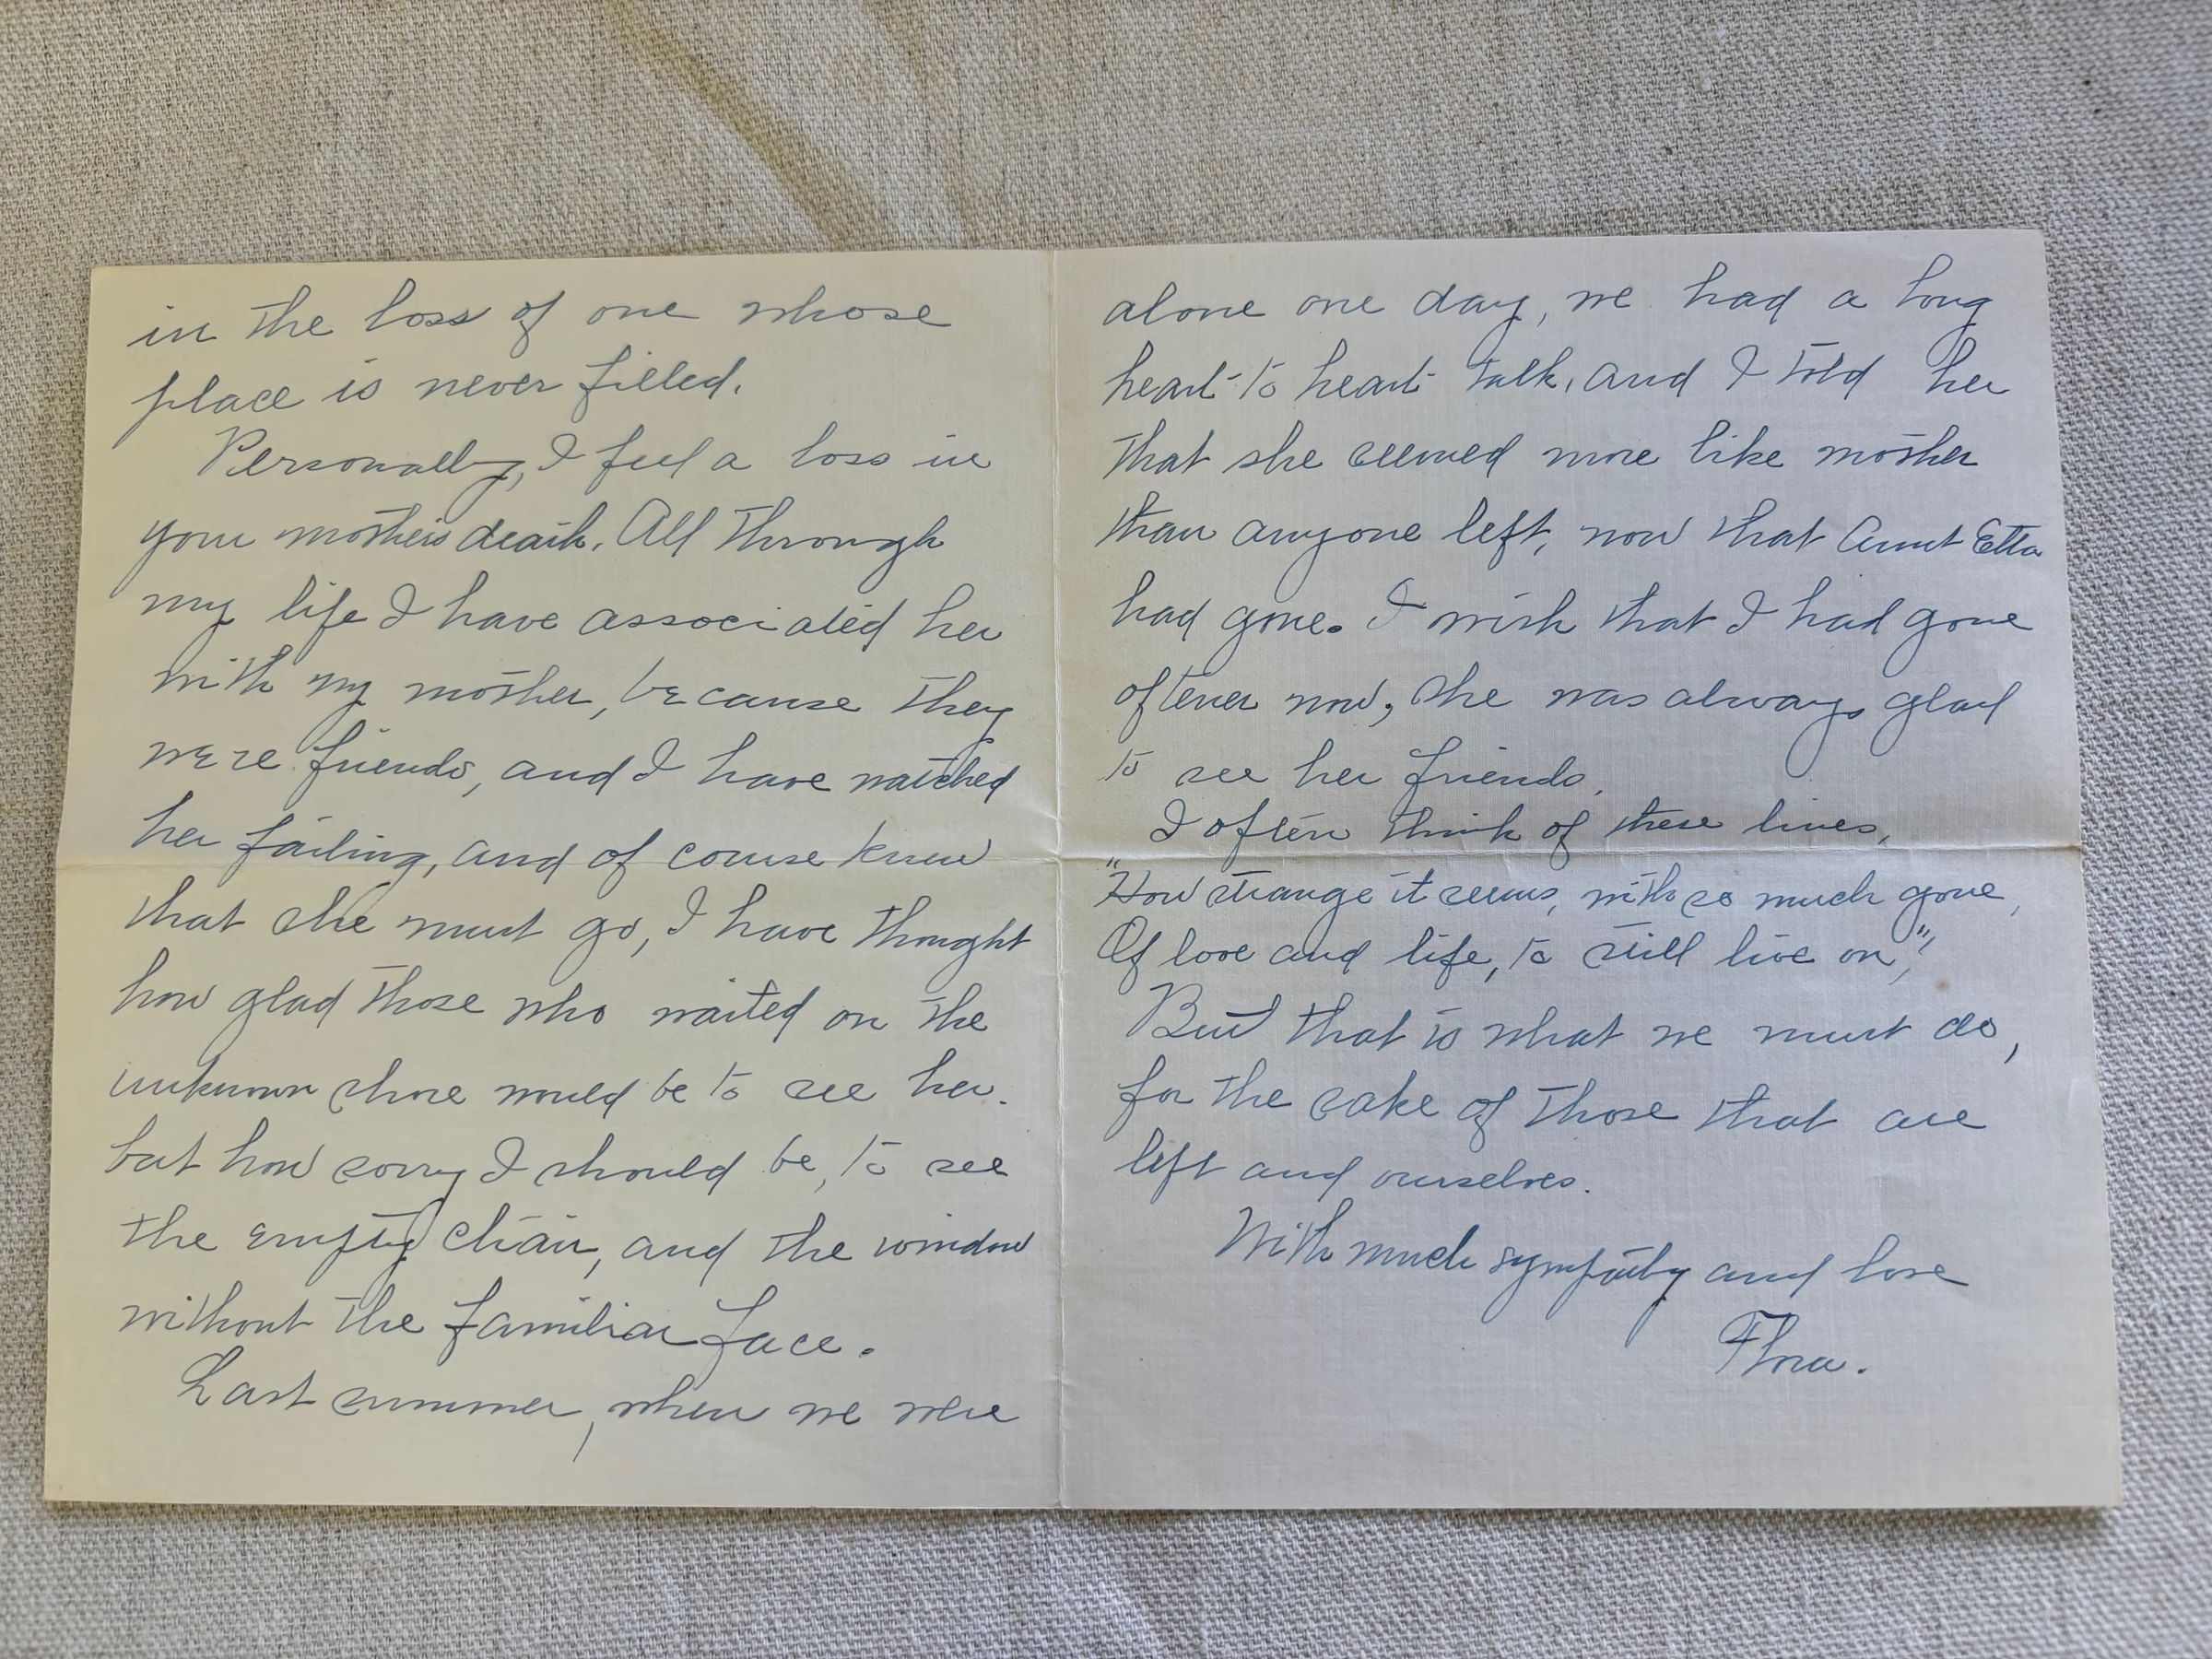 in the loss of one whose
place is never filled.
Personally, I feel a loss in
your mother's death. All through
my life I have associated her
with my mother, because they
were friends, and I have watched
her failing, and of course knew
that she must go, I have thought
how glad those who waited on the
unknown shore would be to see her.
but how sorry I should be, to see
the empty chair, and the window
without the familiar face.
Last summer, when we were
alone one day, we had a long
heart-to heart talk, and I told her
that she seemed more like mother
than anyone left, now that Aunt Etta
had gone. I wish that I had gone
oftener now, she was always glad
to see her friends.
I often think of these lines,
"How strange it seems, with so much gone,
Of love and life, to still live on",
But that is what we must do,
for the sake of those that are
left and ourselves.
With much sympathy and love
Flora.